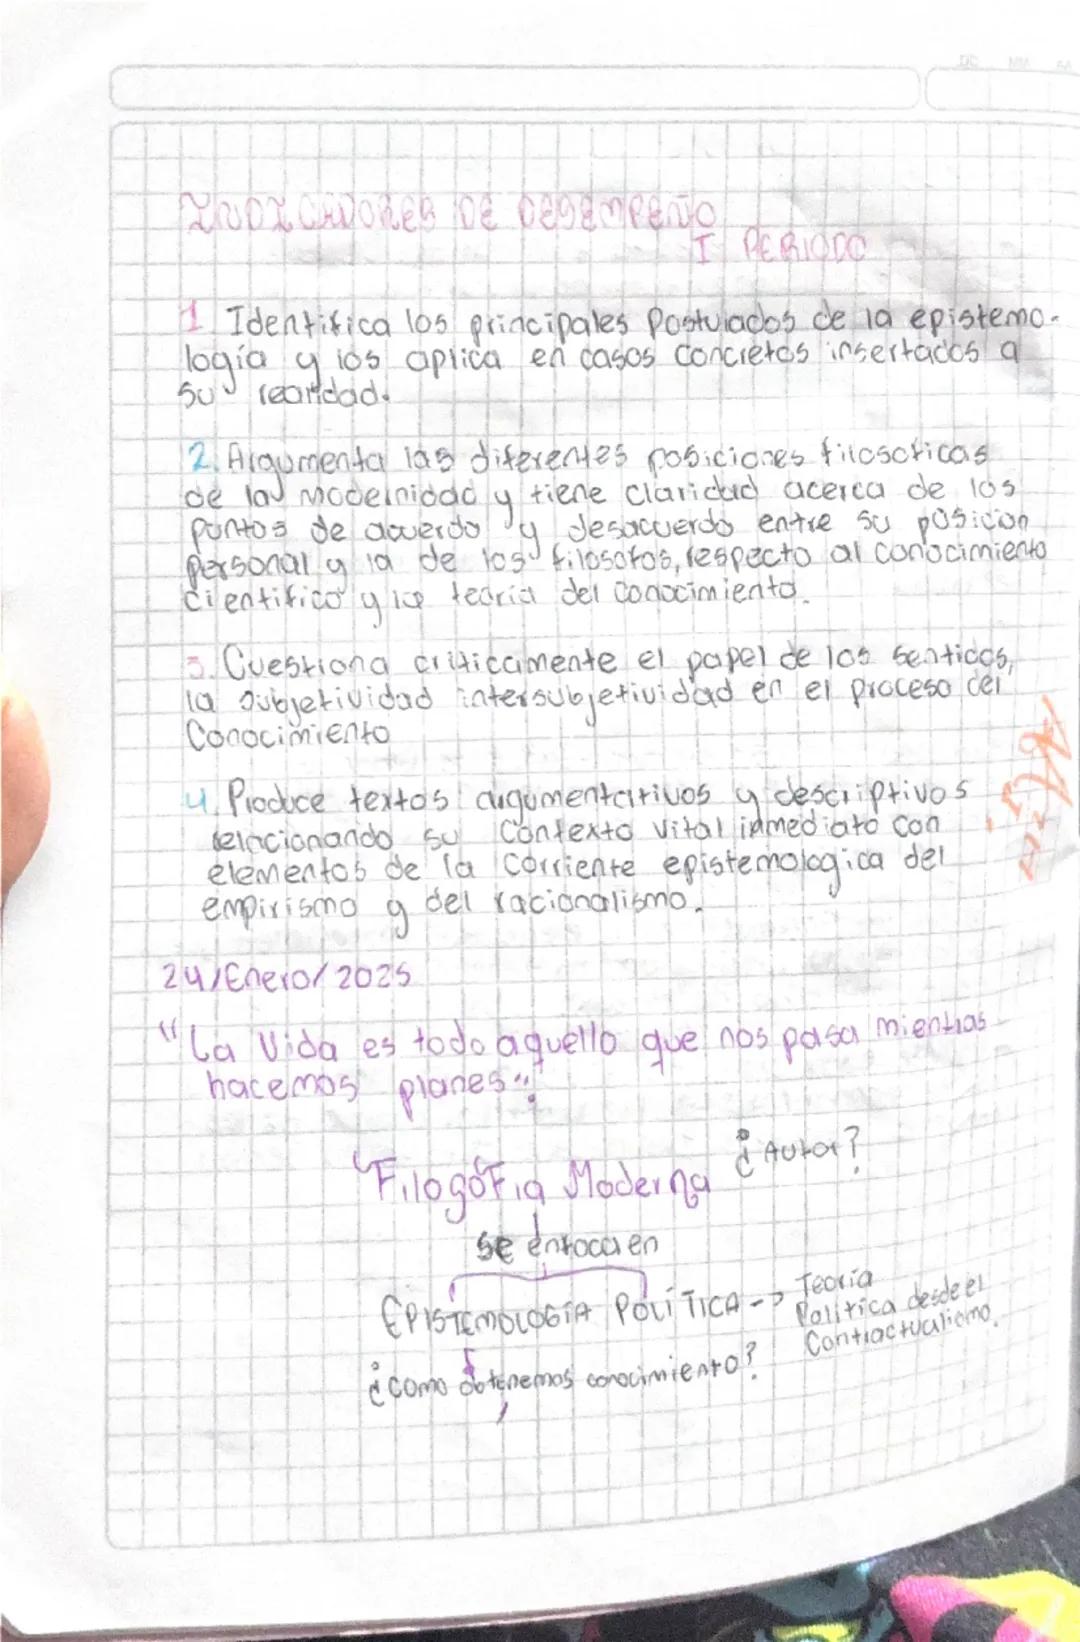 INDICADORES DE DESEMPEÑO
I PERIODO
1. Identifica los principales Postulados de la epistemo-
logía y los aplica en casos concretos insertados a
su realidad.
2. Argumenta las diferentes posiciones filosoficas
de la modernidad y tiene claridad acerca de los
puntos de acuerdo y desacuerdo entre su posicion
personal y la de los filosofos, respecto al conocimiento
cientifico y la teoria del conocimiento.
3. Cuestiona criticamente el papel de los sentidos,
la subjetividad intersubjetividad en el proceso del
Conocimiento
4. Produce textos argumentativos y descriptivos
relacionando su contexto vital inmediato con
elementos de la corriente epistemologica del
empirismo y del racionalismo.
24/Enero/2025
"La Vida es todo aquello que nos pasa mientras
hacemos planes"
¿Autor?
"Filosofia Moderna
se enfoca en
EPISTEMOLOGÍA POLÍTICA -> Teoría
Política desde el
Contractualismo.
¿como obtenemos conocimiento?